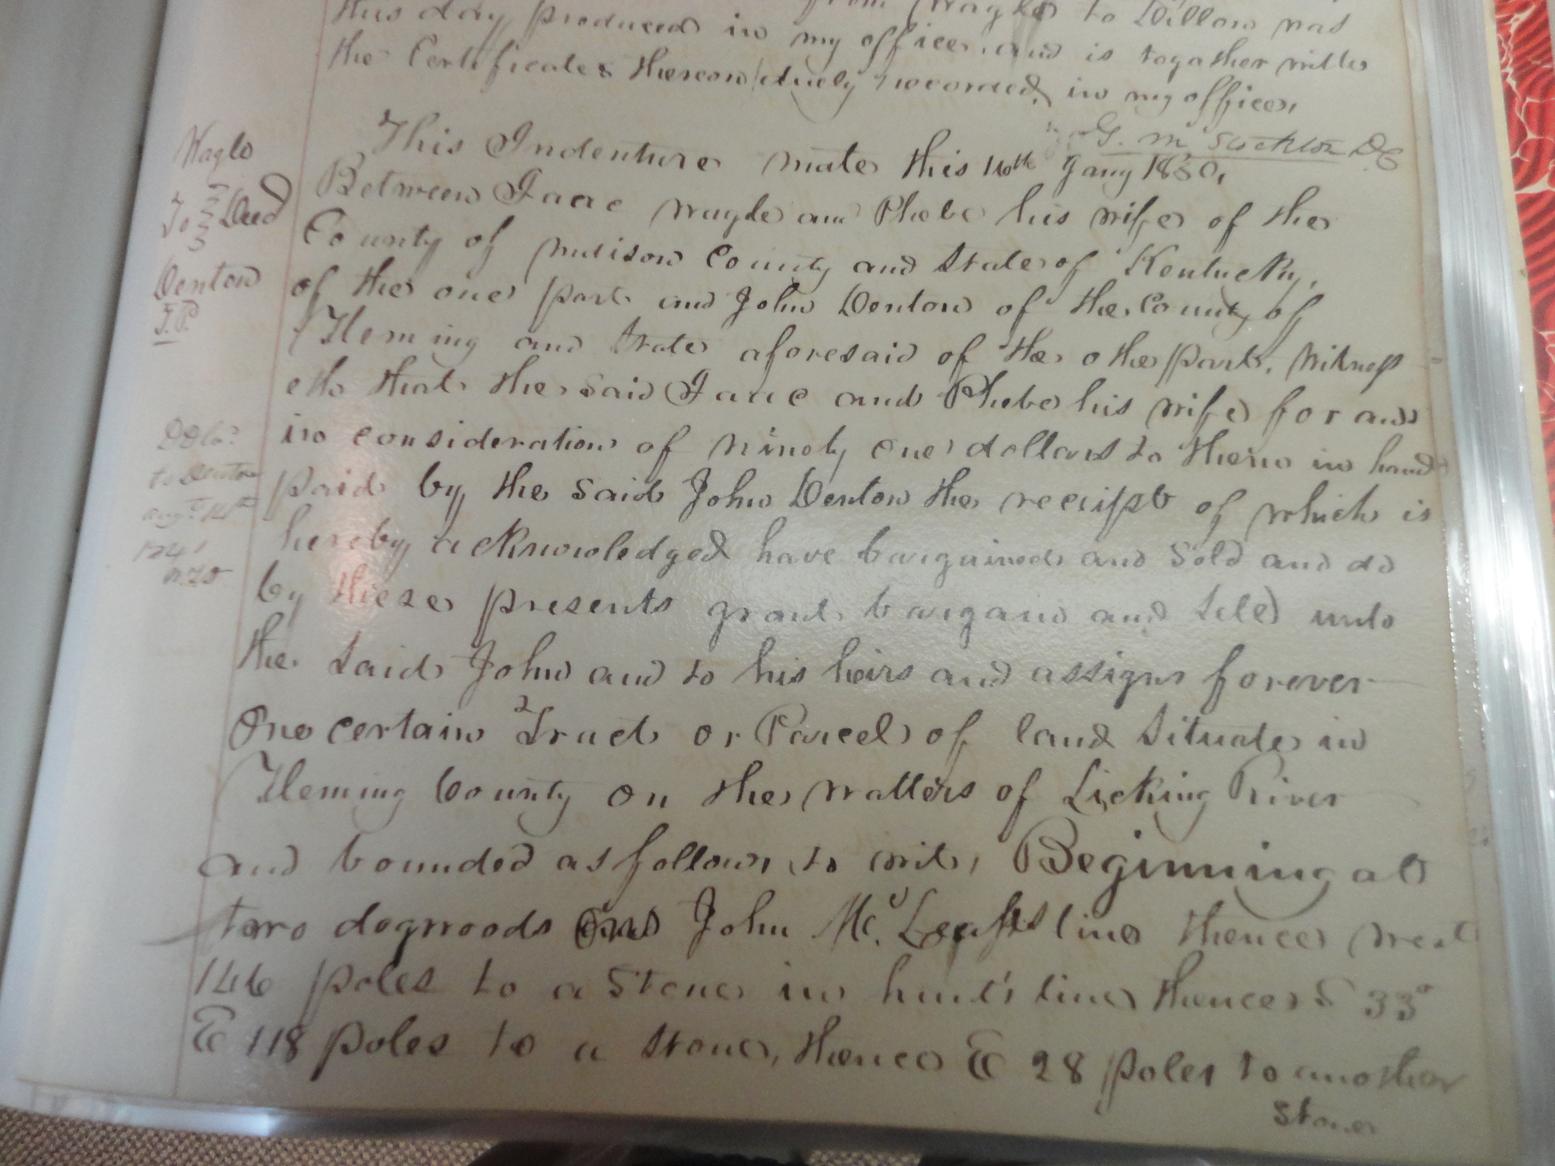 this day produced in my office and is together with
the Certificates thereon duely recorded in my office,
G. M. Stockton D.C
Waglo
To Deed
Denton
This Indenture mate this 16th Jany 1830,
Between Isaac Wagle and Phebe his wife of the
County of Madison County and State of Kentucky,
of the one part and John Denton of the County of
Fleming and State aforesaid of the other part, Witness
eth that the said Isaac and Phebe his wife for and
in consideration of ninety one dollars to them in hand
paid by the said John Denton the receipt of which is
hereby acknowledged have bargained and sold and do
by these presents grant bargain and sell unto
the said John and to his heirs and assigns forever
One certain Tract or Parcel of land Situate in
Fleming County on the watters of Licking River
and bounded as follows, to wit, Beginning at
two dogwoods on John line thence west
146 poles to a Stone in hunt's line thence S 33°
E 118 poles to a stone, thence E 28 poles to another
Stone
to Denton